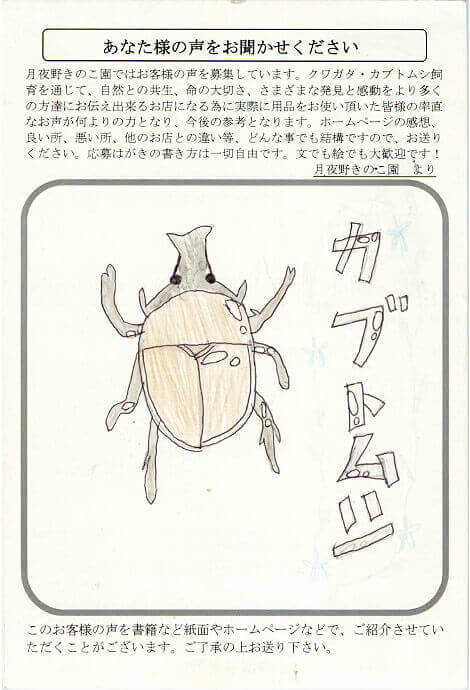 あなた様の声をお聞かせください
月夜野きのこ園ではお客様の声を募集しています。クワガタ・カブトムシ飼
育を通じて、自然との共生、命の大切さ、さまざまな発見と感動をより多く
の方達にお伝え出来るお店になる為に実際に用品をお使い頂いた皆様の率直
なお声が何よりの力となり、今後の参考となります。ホームページの感想、
良い所、悪い所、他のお店との違い等、どんな事でも結構ですので、お送り
ください。応募はがきの書き方は一切自由です。文でも絵でも大歓迎です！
月夜野きのこ園　より
カブトムシ
このお客様の声を書籍など紙面やホームページなどで、ご紹介させてい
ただくことがございます。ご了承の上お送り下さい。